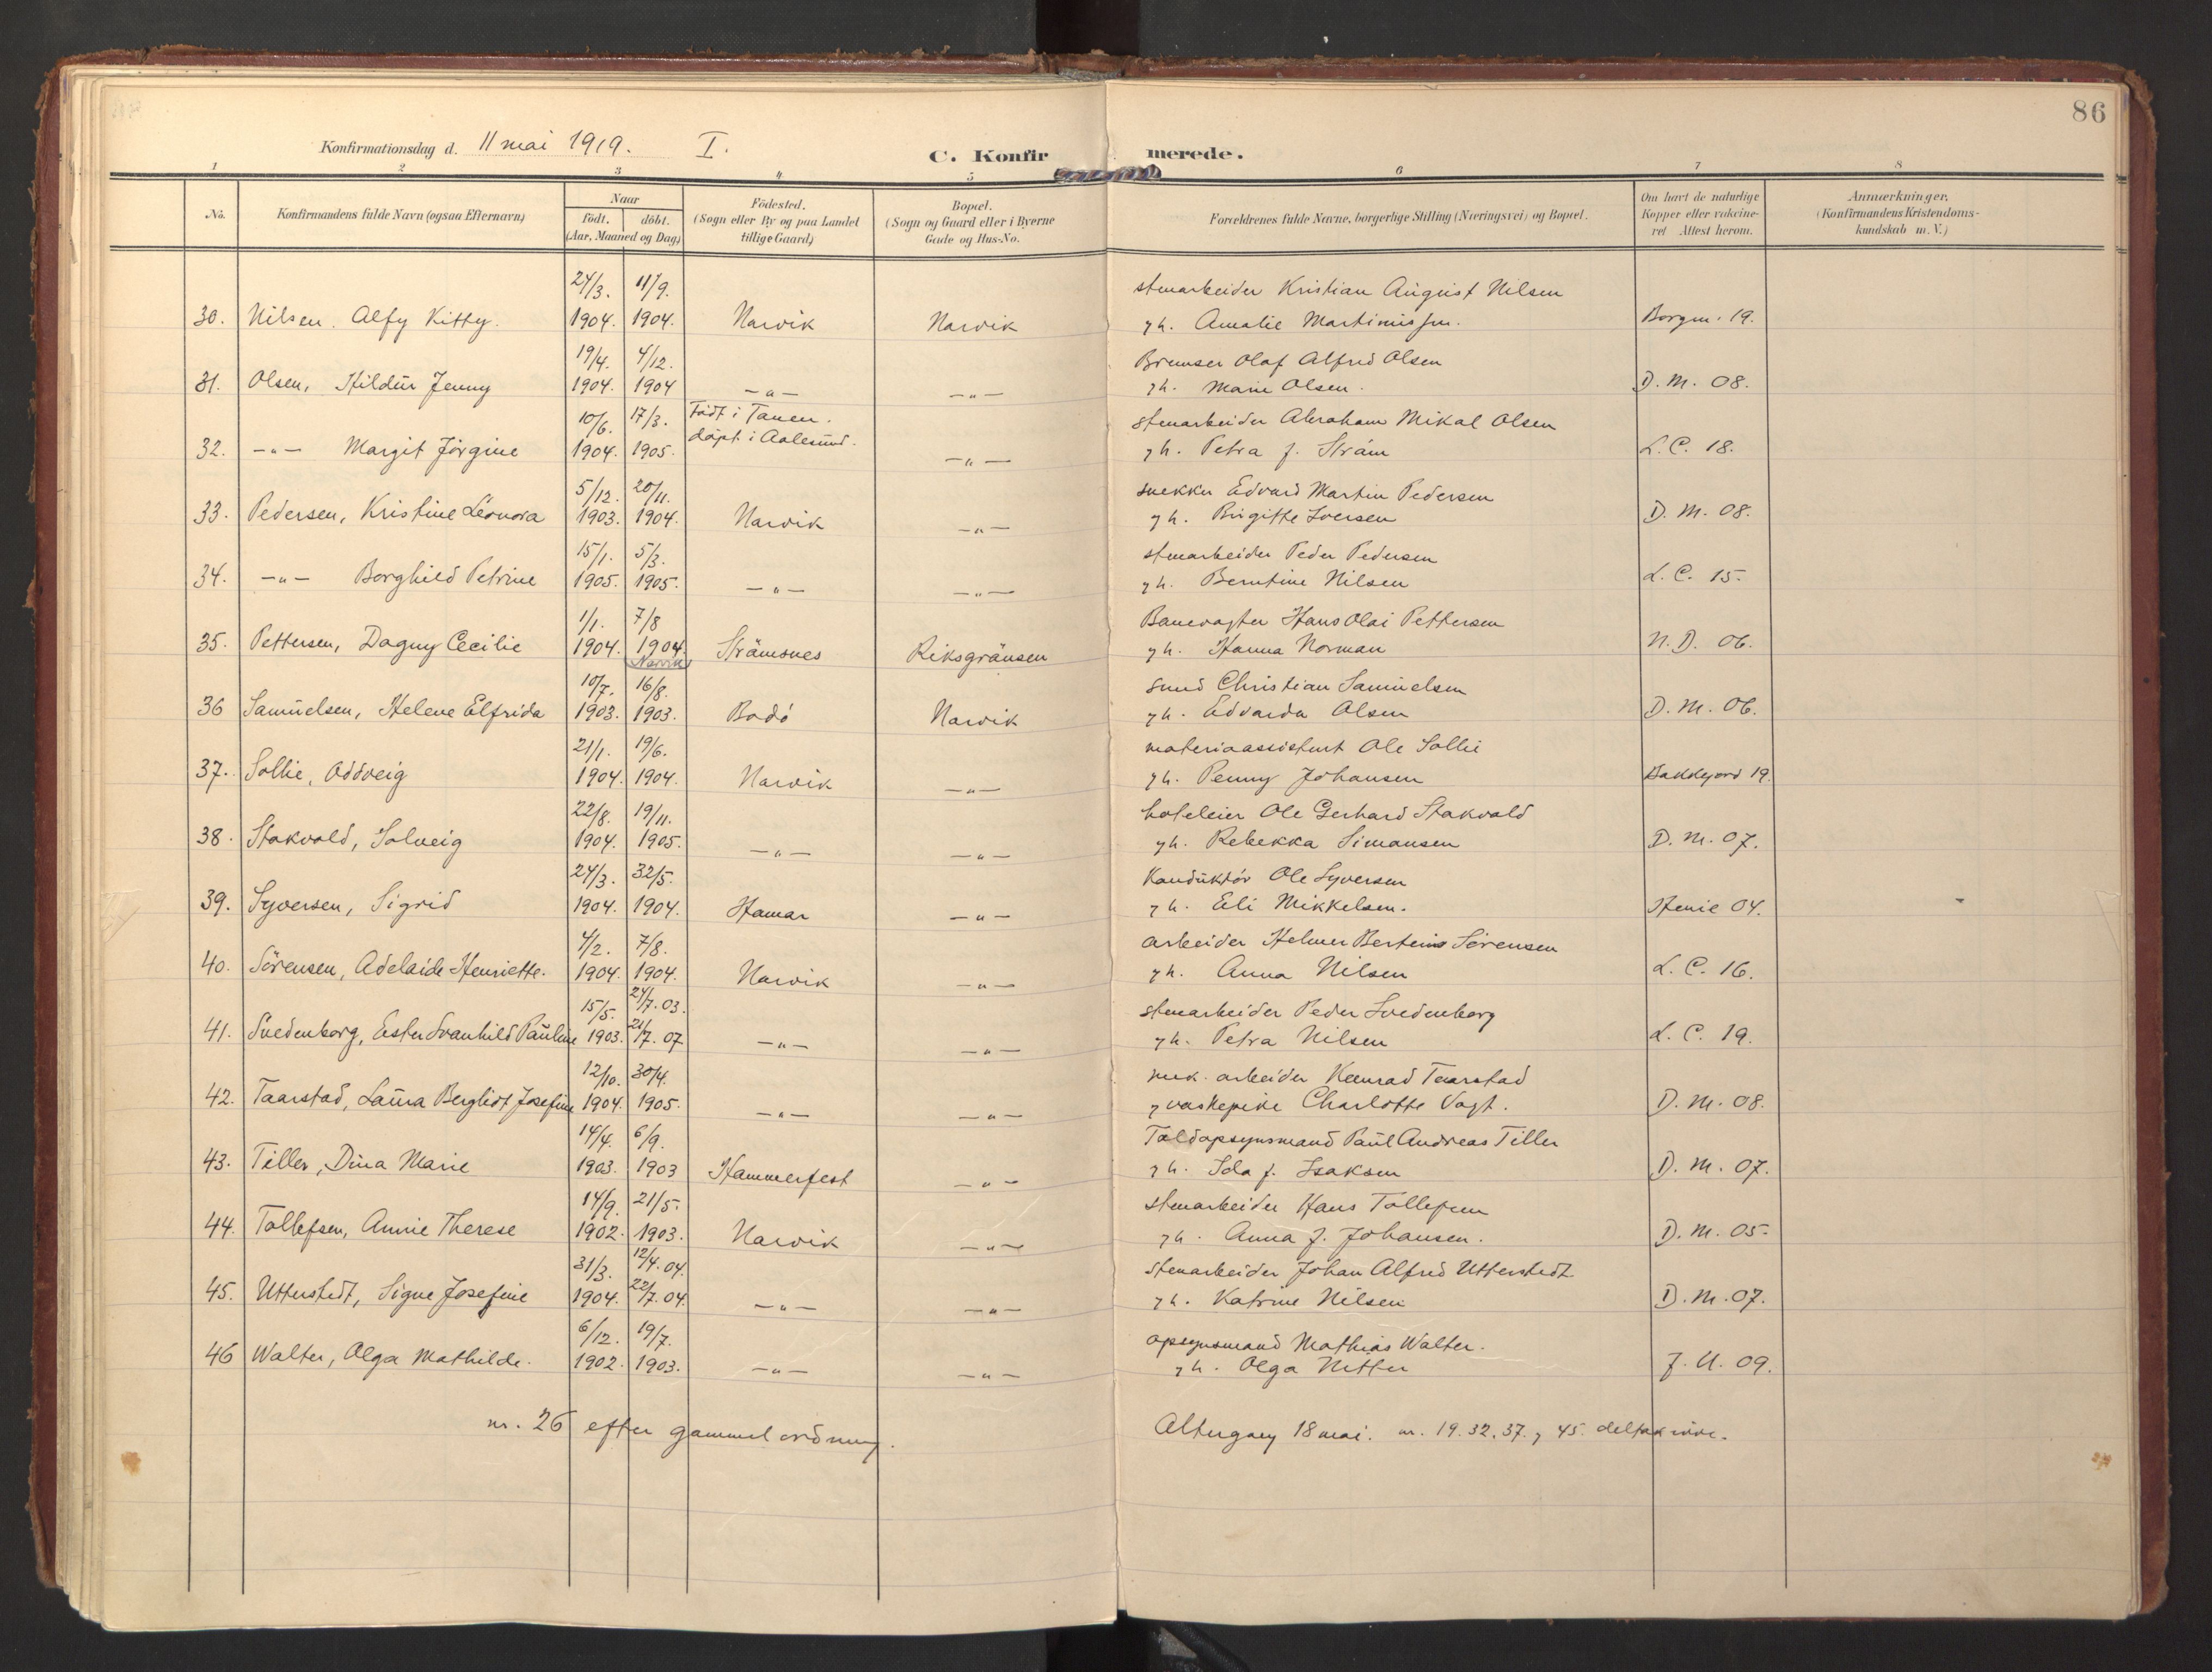 86
Konfirmationsdag d. 11 mai 1919. I.
C. Konfirmerede.
1 2 3 4 5 6 7 8
No.
Konfirmandens fulde Navn (ogsaa Efternavn)
Naar
födt. döbt.
(Aar, Maaned og Dag)
Födested.
(Sogn eller By og paa Landet
tillige Gaard)
Bopæl.
(Sogn og Gaard eller i Byerne
Gade og Hus-No.
Forældrenes fulde Navne, borgerlige Stilling (Næringsvei) og Bopæl.
Om havt de naturlige
Kopper eller vakcine-
ret Attest herom.
Anmærkninger,
(Konfirmandens Kristendoms-
kundskab m. V.)
24/3. 11/9. stenarbeider Kristian August Nilsen
30. Nilsen, Alfy Kitty. 1904. 1904. Narvik Narvik g h. Amalie Martinussen. Borgm. 19.
19/4. 4/12. Bremser Olaf Alfred Olsen
31. Olsen, Hildur Jenny 1904. 1904 —"— —"— g h. Marie Olsen. D. M. 08.
10/6. 17/3. Födt i Tanen. stenarbeider Abraham Mikal Olsen
döpt i Aalesund.
32. —"— Margit Jörgine 1904. 1905. —"— g h. Petra f. Ström L. C. 18.
5/12. 20/11. snekker Edvard Martin Pedersen
33. Pedersen, Kristine Leonora 1903. 1904. Narvik —"— g h. Birgitte Iversen D. M. 08.
15/1. 5/3. stenarbeider Peder Pedersen
34. —"— Borghild Petrine 1905. 1905. —"— —"— g h. Berntine Nilsen L. C. 15.
1/1. 7/8 Banevagter Hans Olai Pettersen
35. Pettersen, Dagny Cecilie 1904. 1904. Strömsnes Riksgränsen g h. Hanna Norman N. D. 06.
Narvik
10/7. 16/8. smed Christian Samuelsen
36 Samuelsen, Helene Elfrida 1903. 1903. Bodö Narvik g h. Edvarda Olsen D. M. 06.
21/1. 19/6. materiaassistent Ole Sollie
37. Sollie, Oddveig 1904. 1904. Narvik —"— g h. Penny Johansen Bakkejord 19.
22/8. 19/11. hoteleier Ole Gerhard Stakvold
38. Stakvold, Solveig 1904. 1905. —"— —"— g h. Rebekka Simonsen D. M. 07.
24/3. 32/5. Konduktör Ole Syversen
39. Syversen, Sigrid 1904. 1904. Hamar —"— g h. Eli Mikkelsen. Henie 04.
4/2. 7/8. arbeider Helmer Berteius Sörensen
40. Sörensen, Adelaide Henriette. 1904. 1904. Narvik —"— g h. Anna Nilsen L. C. 16.
15/5. 24/7. 03. stenarbeider Peder Svedenborg
41. Svedenborg, Ester Svanhild Pauline 1903. 21/7. 07 —"— —"— g h. Petra Nilsen L. C. 19.
12/10. 30/4. mek. arbeider Konrad Taarstad
42. Taarstad, Laura Bergliot Josefine 1904. 1905. —"— —"— g vaskepike Charlotte Vogt. D. M. 08.
14/4. 6/9. Toldopsynsmand Paul Andreas Tiller
43. Tiller, Dina Marie 1903. 1903 Hammerfest —"— g h. Ida f. Isaksen D. M. 07.
14/9. 21/5. stenarbeider Hans Tollefsen
44. Tollefsen, Annie Therese 1902. 1903. Narvik —"— g h. Anna f. Johansen. D. M. 05.
31/3. 12/4. 04. stenarbeider Johan Alfred Utterstedt
45. Utterstedt, Signe Josefine 1904. 22/7. 04. —"— —"— g h. Katrine Nilsen D. M. 07.
6/12. 19/7. opsynsmand Mathias Walter.
46 Walter, Olga Mathilde. 1902. 1903. —"— —"— g h. Olga Netter J. U. 09.
nr. 26 efter gammel ordning. Altergang 18 mai. nr. 19. 32. 37. g 45. deltok ikke.